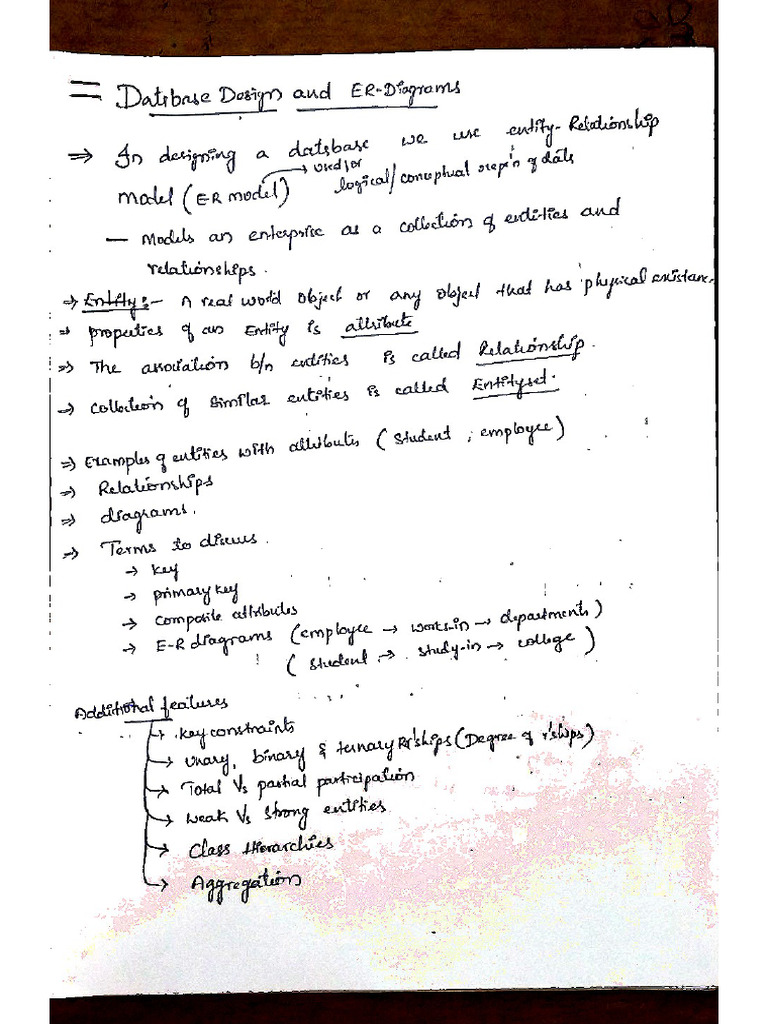 = Datsbase Design and ER-Diagrams
⇒ In designing a database we use entity-Relationship
Model (ER model) → used for logical/conceptual rep'n of data
— Models an enterprise as a collection of entities and
relationships.
→ Entity:- A real world object or any object that has physical existance.
⇒ properties of an Entity is attribute
⇒ The association b/n entities is called Relationship.
→ collection of similar entities is called Entityset.
⇒ Examples of entities with attributes (student, employee)
⇒ Relationships
⇒ diagrams.
→ Terms to discuss.
→ key
→ primary key
→ composite attributes
→ E-R diagrams (employee → works-in → departments)
(student → study-in → college)
Additional features
→ key constraints
→ unary, binary & ternary Rr'ships (Degree of r'ships)
→ Total Vs partial participation
→ weak Vs strong entities
→ Class Hierarchies
→ Aggregation